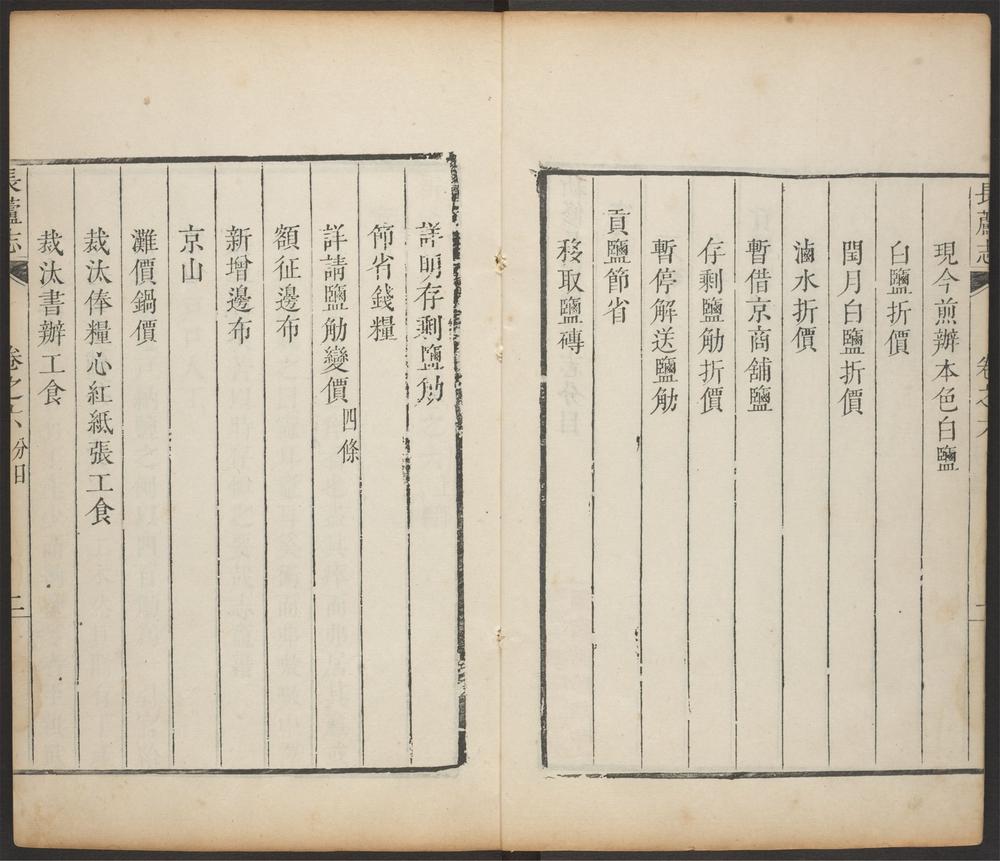 現今煎辦本色白鹽
白鹽折價
閏月白鹽折價
滷水折價
暫借京商舖鹽
存剩鹽觔折價
暫停解送鹽觔
貢鹽節省
移取鹽磚
詳明存剩鹽觔
節省錢糧
詳請鹽觔變價 四條
額征邊布
新增邊布
京山
灘價鍋價
裁汰俸糧心紅紙張工食
裁汰書辦工食
長蘆志 卷之六 分目 二